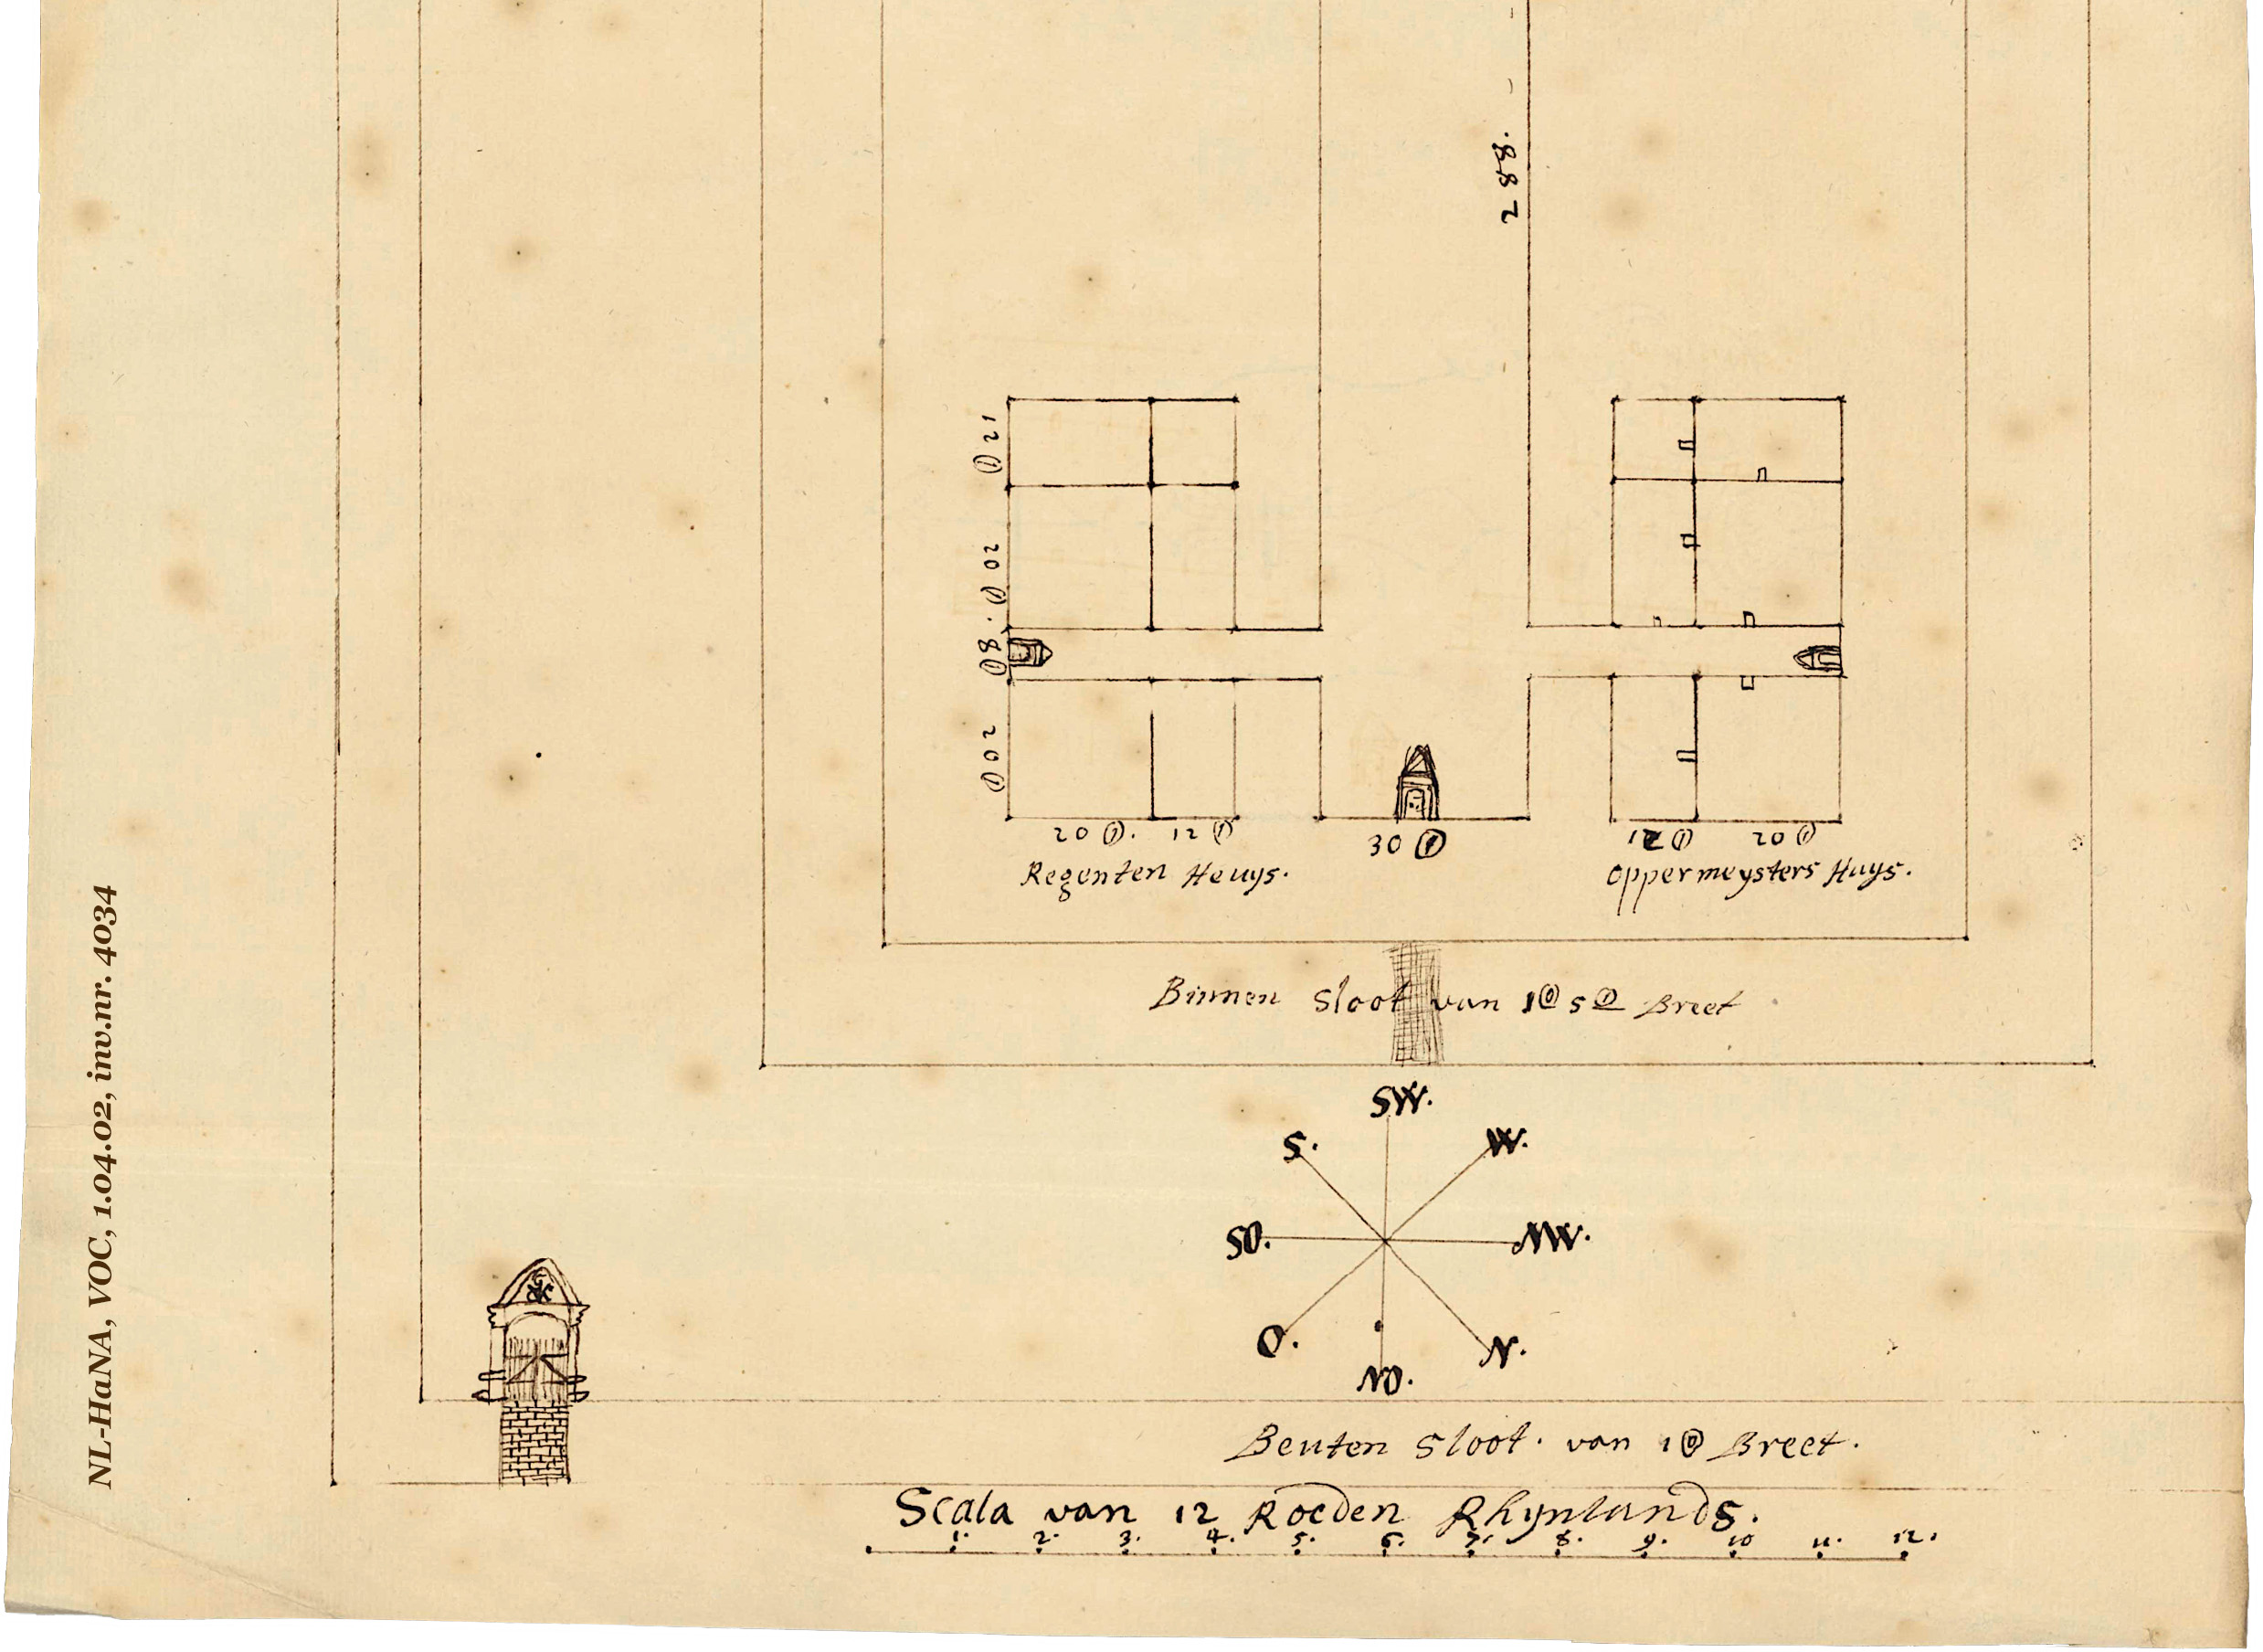 288.
12 ①
20 ①.
8 ①
20 ①
20 ①. 12 ①
30 ①
12 ① 20 ①
Regenten Heuys.
oppermeysters Huys.
Binnen Sloot van 1⓪ 5① Breet
SW.
S.
W.
SO.
NW.
O.
N.
NO.
Beuten Sloot. van 1⓪ Breet.
Scala van 12 Roeden Rhynlands.
1. 2. 3. 4. 5. 6. 7. 8. 9. 10 11. 12.
NL-HaNA, VOC, 1.04.02, inv.nr. 4034